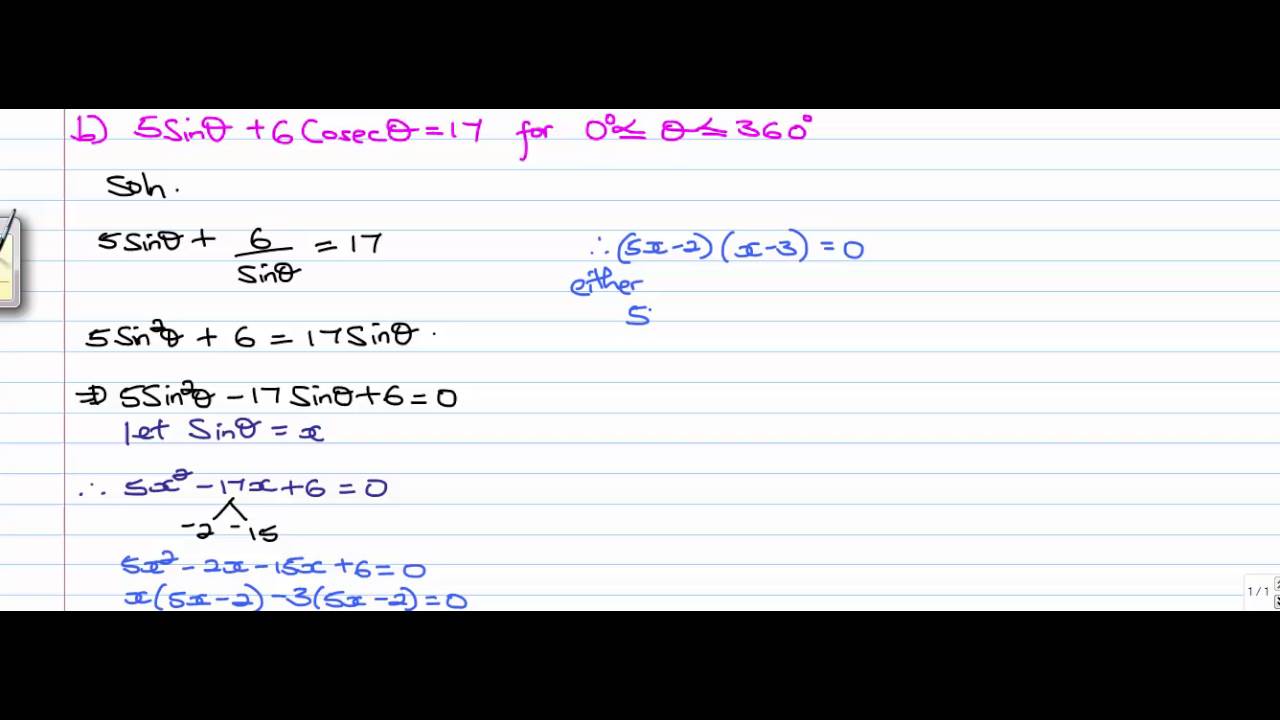 b) 5Sinθ + 6Cosecθ = 17 for 0° ≤ θ ≤ 360°
Soln.
5Sinθ + 6/Sinθ = 17
5Sin²θ + 6 = 17Sinθ.
⇒ 5Sin²θ - 17Sinθ + 6 = 0
let Sinθ = x
∴ 5x² - 17x + 6 = 0
-2 -15
5x² - 2x - 15x + 6 = 0
x(5x - 2) - 3(5x - 2) = 0
∴ (5x - 2)(x - 3) = 0
either
5
1 / 1